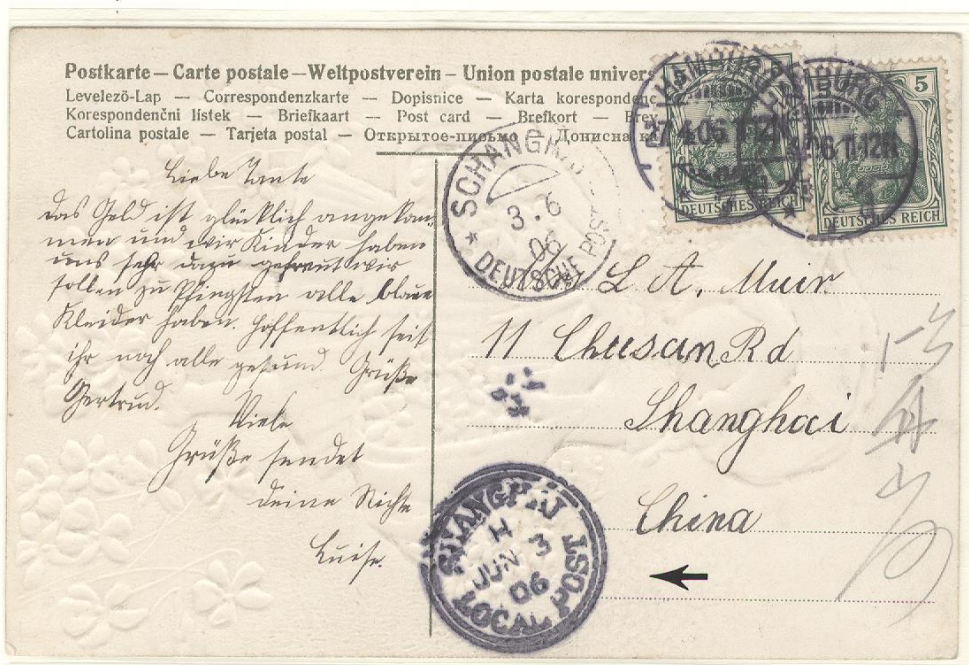 Postkarte — Carte postale — Weltpostverein — Union postale univers
Levelezö-Lap — Correspondenzkarte — Dopisnice — Karta korespondenc
Korespondenční lístek — Briefkaart — Post card — Brefkort — Brev
Cartolina postale — Tarjeta postal — Открытое-письмо — Дописна
5
HAMBURG
27.4.06.11-12N
DEUTSCHES REICH
5
HAMBURG
06.11-12N
DEUTSCHES REICH
SCHANGHAI
3.6
06
DEUTSCHE POST
Liebe Tante
das Geld ist glücklich angekom
men und wir Kinder haben
uns sehr dazu gefreut wir
sollen zu Pfingsten alle blaue
Kleider haben. Hoffentlich seit
ihr noch alle gesund. Grüße
Gertrud.
Viele
Grüße sendet
deine Nichte
Luise.
L. A. Muir
11 Chusan Rd
Shanghai
China
SHANGHAI
H
JUN 3
06
LOCAL POST